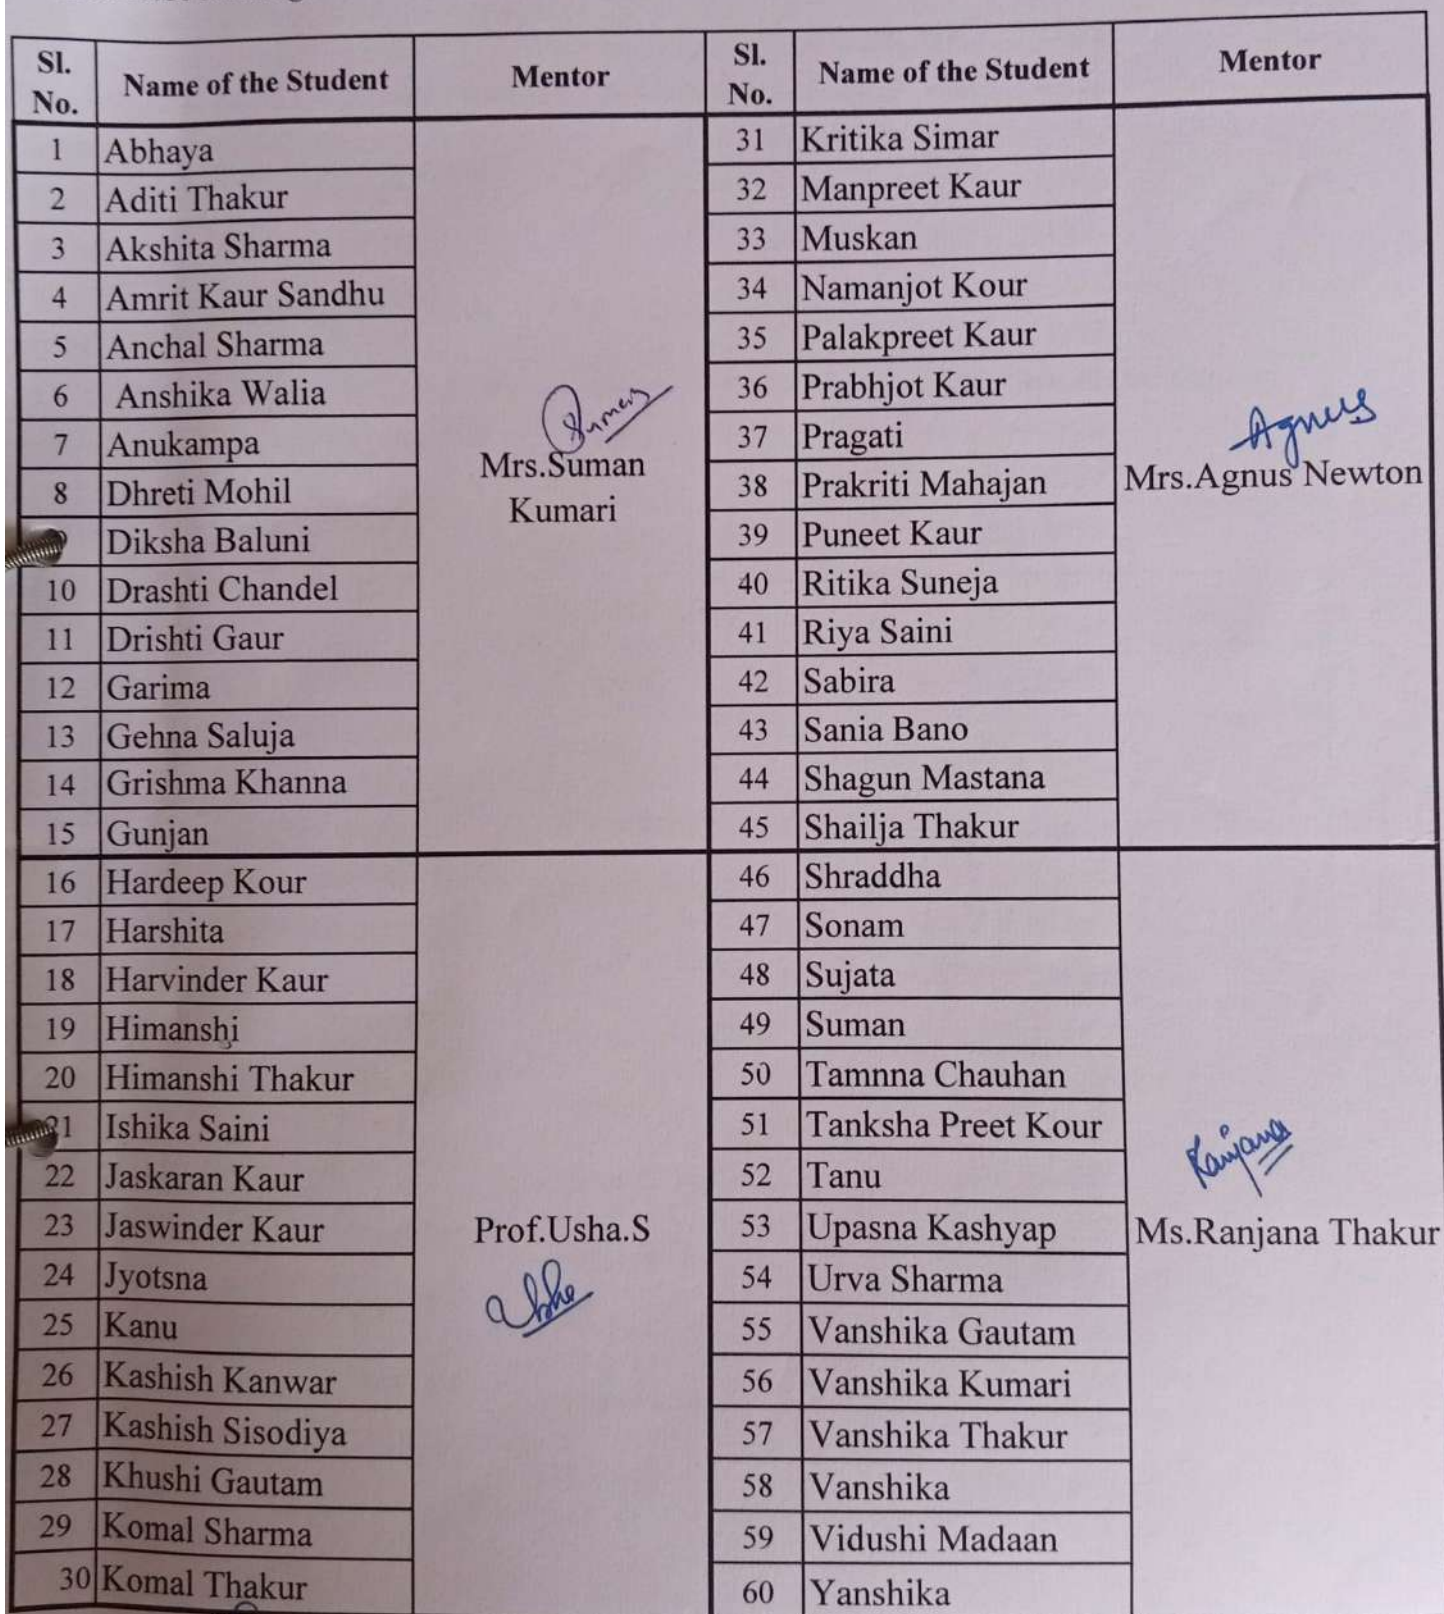 Sl. No. Name of the Student Mentor Sl. No. Name of the Student Mentor
1 Abhaya 31 Kritika Simar
2 Aditi Thakur 32 Manpreet Kaur
3 Akshita Sharma 33 Muskan
4 Amrit Kaur Sandhu 34 Namanjot Kour
5 Anchal Sharma 35 Palakpreet Kaur
6 Anshika Walia 36 Prabhjot Kaur
Agnus
7 Anukampa 37 Pragati
Mrs.Suman
Kumari
Mrs.Agnus Newton
8 Dhreti Mohil 38 Prakriti Mahajan
Diksha Baluni 39 Puneet Kaur
10 Drashti Chandel 40 Ritika Suneja
11 Drishti Gaur 41 Riya Saini
12 Garima 42 Sabira
13 Gehna Saluja 43 Sania Bano
14 Grishma Khanna 44 Shagun Mastana
15 Gunjan 45 Shailja Thakur
16 Hardeep Kour 46 Shraddha
17 Harshita 47 Sonam
18 Harvinder Kaur 48 Sujata
19 Himanshi 49 Suman
20 Himanshi Thakur 50 Tamnna Chauhan
21 Ishika Saini 51 Tanksha Preet Kour
Ranjana
22 Jaskaran Kaur 52 Tanu
23 Jaswinder Kaur Prof.Usha.S 53 Upasna Kashyap Ms.Ranjana Thakur
24 Jyotsna 54 Urva Sharma
25 Kanu 55 Vanshika Gautam
26 Kashish Kanwar 56 Vanshika Kumari
27 Kashish Sisodiya 57 Vanshika Thakur
28 Khushi Gautam 58 Vanshika
29 Komal Sharma 59 Vidushi Madaan
30 Komal Thakur 60 Yanshika